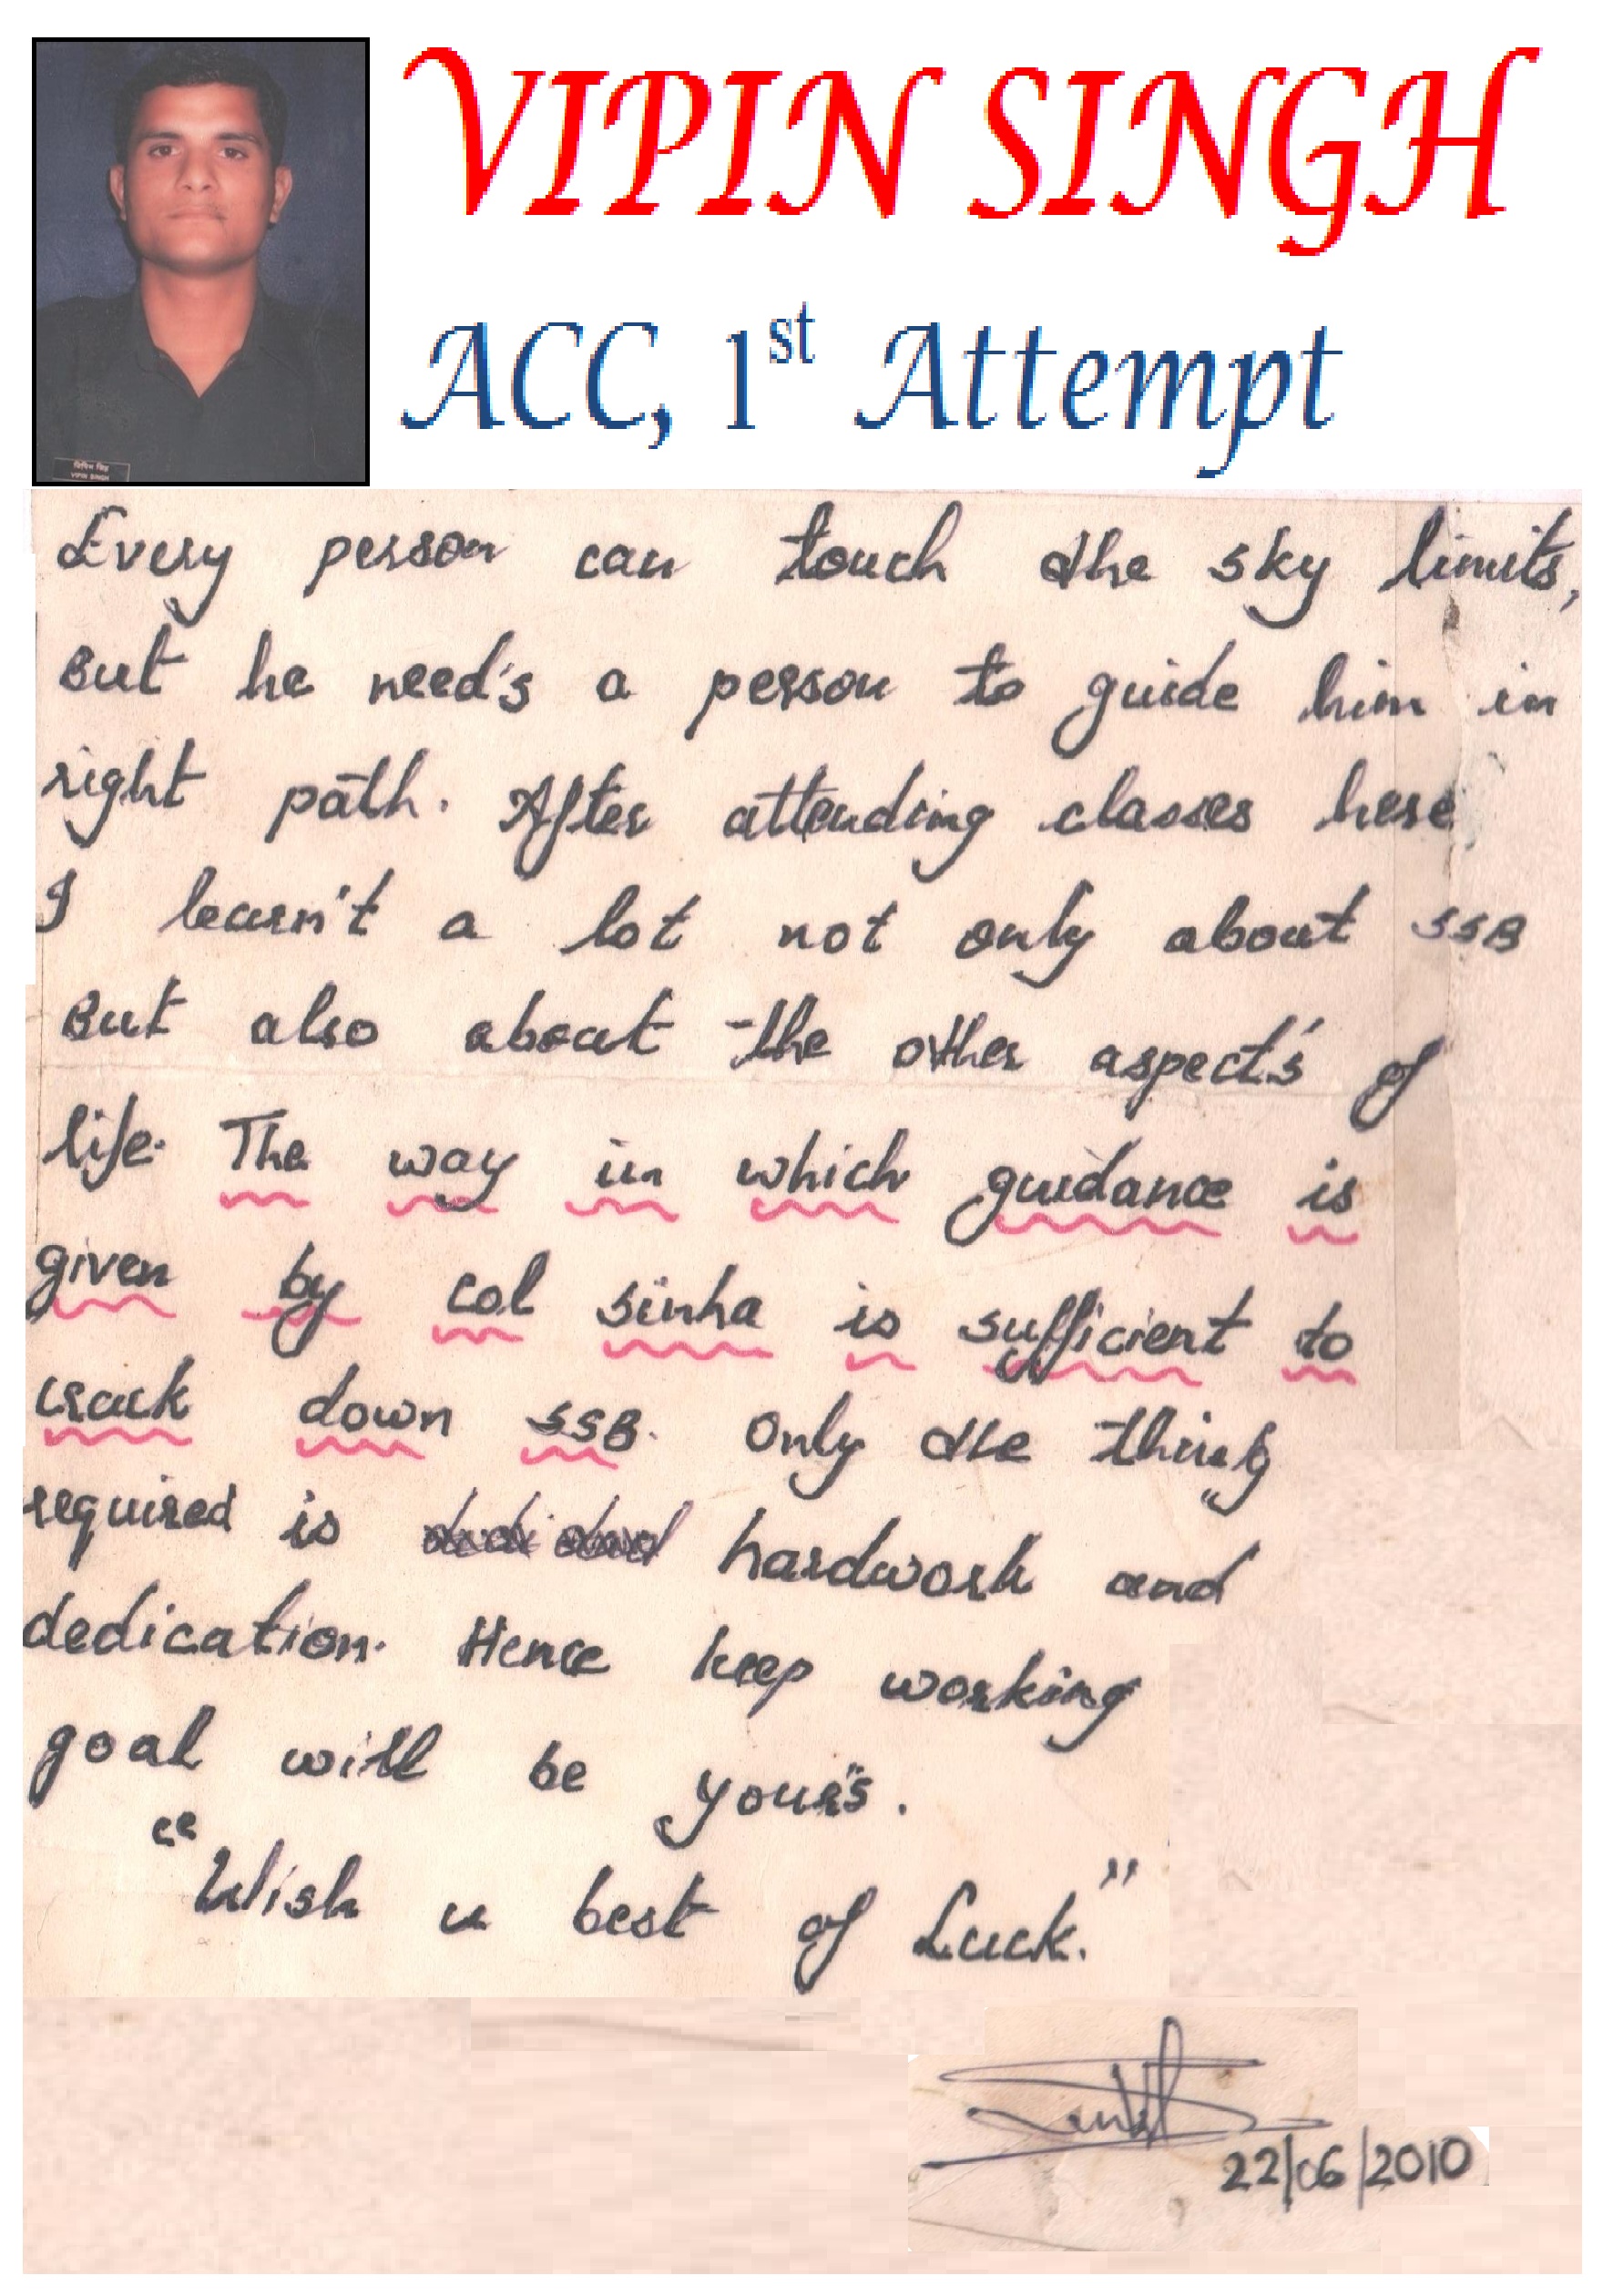 VIPIN SINGH
ACC, 1st Attempt
विपिन सिंह
VIPIN SINGH
Every person can touch the sky limits,
But he need's a person to guide him in
right path. After attending classes here
I learn't a lot not only about SSB
But also about the other aspect's of
life. The way in which guidance is
given by col sinha is sufficient to
crack down SSB. Only the thing
required is hardwork and
dedication. Hence keep working
goal will be your's.
"Wish u best of Luck."
22/06/2010